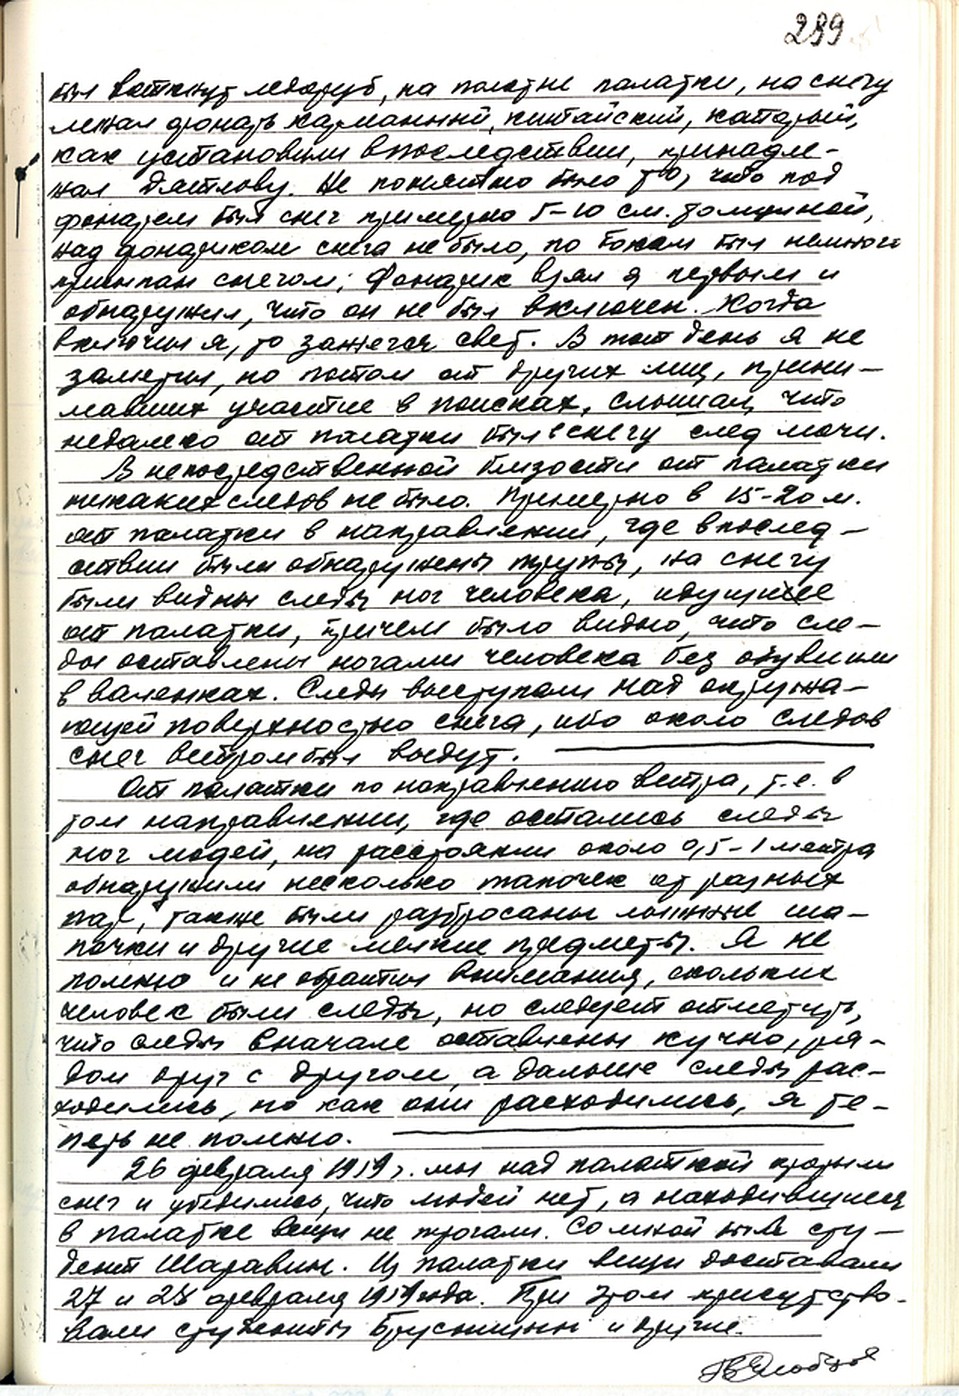 299
был воткнут ледоруб, на полотне палатки, на снегу
лежал фонарь карманный, китайский, который,
как установили впоследствии, принадле-
жал Дятлову. Не понятно было то, что под
фонарем был снег примерно 5-10 см. толщиной,
над фонариком снега не было, по бокам был немного
присыпан снегом. Фонарик взял я первым и
обнаружил, что он не был включен. Когда
включил я, то зажегся свет. В тот день я не
заметил, но потом от других лиц, прини-
мавших участие в поисках, слышал, что
недалеко от палатки был в снегу след мочи.
В непосредственной близости от палатки
никаких следов не было. Примерно в 15-20 м.
от палатки в направлении, где впослед-
ствии были обнаружены трупы, на снегу
были видны следы ног человека, идущие
от палатки, причем было видно, что сле-
ды оставлены ногами человека без обуви или
в валенках. Следы выступали над окружа-
ющей поверхностью снега, ибо около следов
снег ветром был выдут.
От палатки по направлению ветра, т.е. в
том направлении, где остались следы
ног людей, на расстоянии около 0,5-1 метра
обнаружили несколько тапочек от разных
пар, также были разбросаны лыжные ша-
почки и другие мелкие предметы. Я не
помню и не обратил внимания, скольких
человек были следы, но следует отметить,
что следы вначале оставлены кучно, ря-
дом друг с другом, а дальше следы рас-
ходились, но как они расходились, я те-
перь не помню.
26 февраля 1959 г. мы над палаткой прорыли
снег и убедились, что людей нет, а находившиеся
в палатке вещи не трогали. Со мной был сту-
дент Шаравин. Из палатки вещи доставали
27 и 28 февраля 1959 года. При этом присутство-
вали студенты Брусницын и другие.